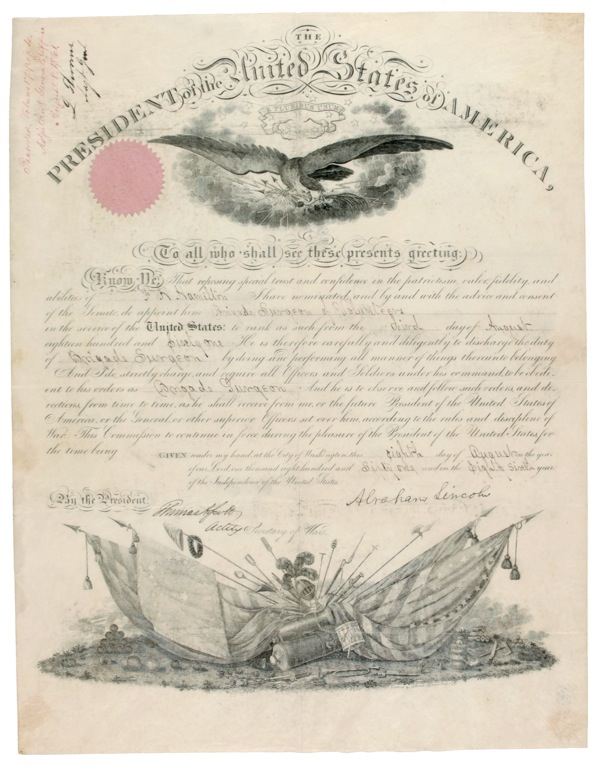 THE
PRESIDENT of the United States of AMERICA,
E PLURIBUS UNUM
L Thomas
To all who shall see these presents greeting:
Know Ye, That reposing special trust and confidence in the patriotism, valor, fidelity, and
abilities of F H Hamilton I have nominated, and by and with the advice and consent
of the Senate, do appoint him Brigade Surgeon of Volunteers
in the service of the United States: to rank as such from the third day of August
eighteen hundred and sixty one He is therefore carefully and diligently to discharge the duty
of Brigade Surgeon by doing and performing all manner of things thereunto belonging
And I do strictly charge, and require all Officers and Soldiers under his command, to be obedi-
ent to his orders as Brigade Surgeon And he is to observe and follow such orders, and di-
rections, from time to time, as he shall receive from me, or the future President of the United States of
America, or the General, or other superior Officers set over him, according to the rules and discipline of
War. This Commission to continue in force during the pleasure of the President of the United States, for
the time being.
GIVEN under my hand at the City of Washington this eighth day of August in the year
of our Lord one thousand eight hundred and Sixty one and in the Eighty Sixth year
of the Independence of the United States.
By the President.
Abraham Lincoln
Thomas A Scott
Acting Secretary of War.